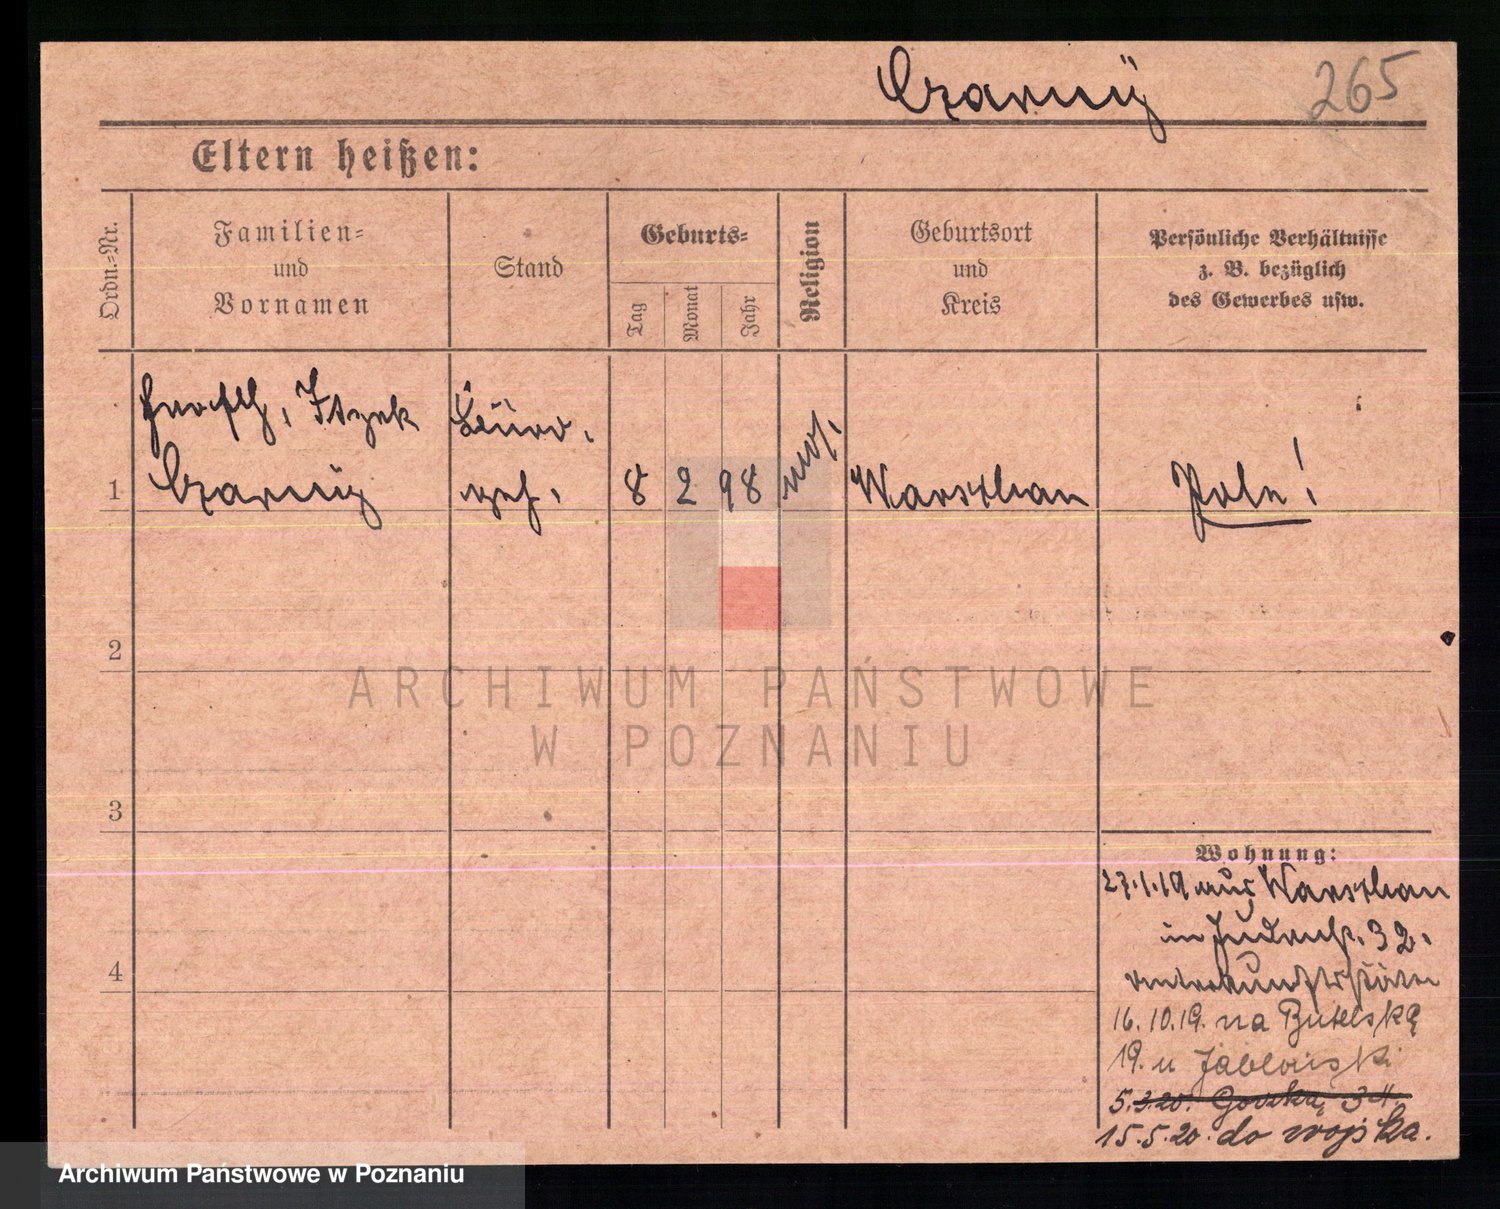 Czarny
265
Eltern heißen:
Ordn.-Nr.
Familien=
und
Vornamen
Stand
Geburts=
Tag
Monat
Jahr
Religion
Geburtsort
und
Kreis
Persönliche Verhältnisse
z. B. bezüglich
des Gewerbes usw.
Itzek
Czarny
Büro.
geh.
1
8
2
98
mos.
Warschau
Pole!
2
3
4
Wohnung:
27.1.19 aus Warschau
in Judenstr. 32.
16.10.19. na Butelską
19. u Jabłoński
5.3.20. 34.
15.5.20. do wojska.
ARCHIWUM PAŃSTWOWE
W POZNANIU
Archiwum Państwowe w Poznaniu